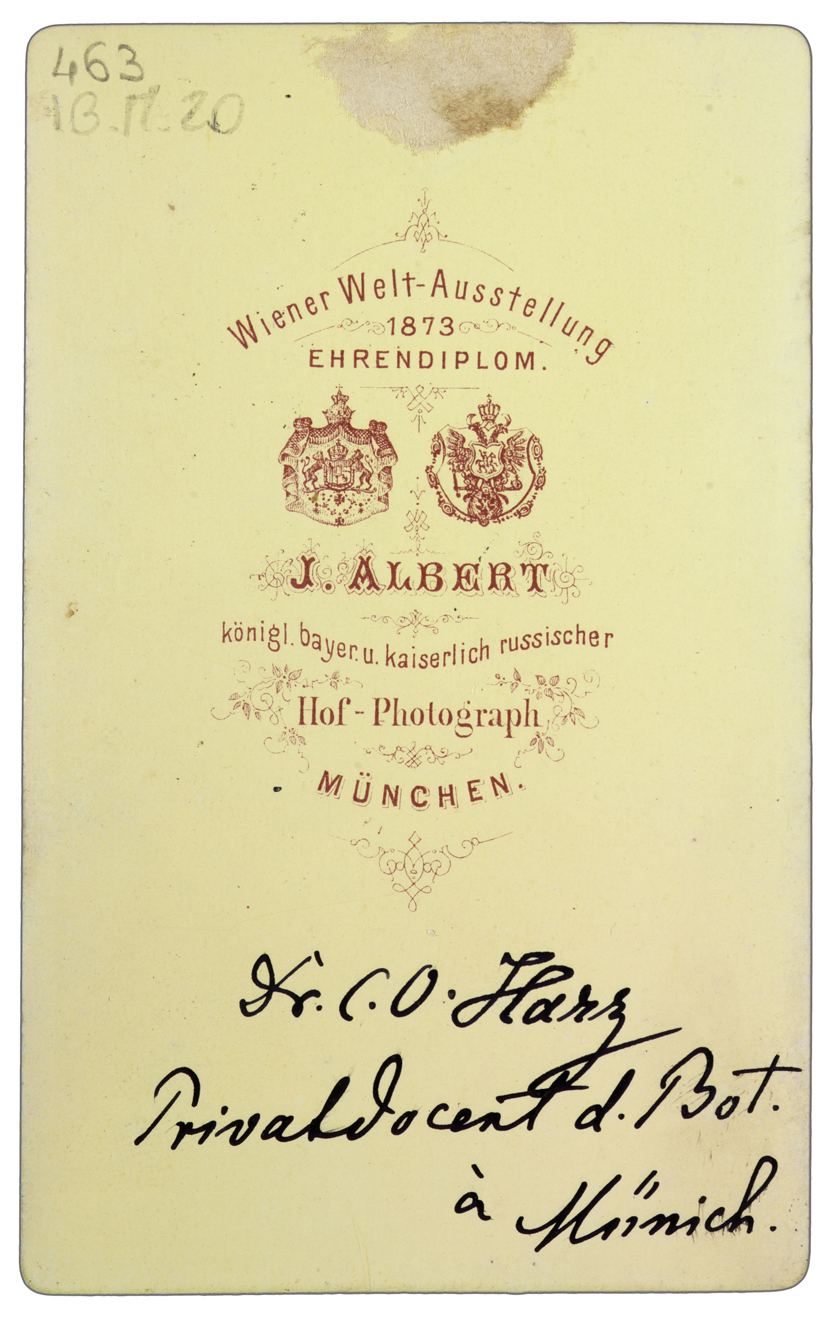 463
13.11.20
Wiener Welt-Ausstellung
1873
EHRENDIPLOM.
J. ALBERT
königl. bayer. u. kaiserlich russischer
Hof-Photograph
MÜNCHEN.
Dr. C. O. Harz
Privatdocent d. Bot.
à Münich.